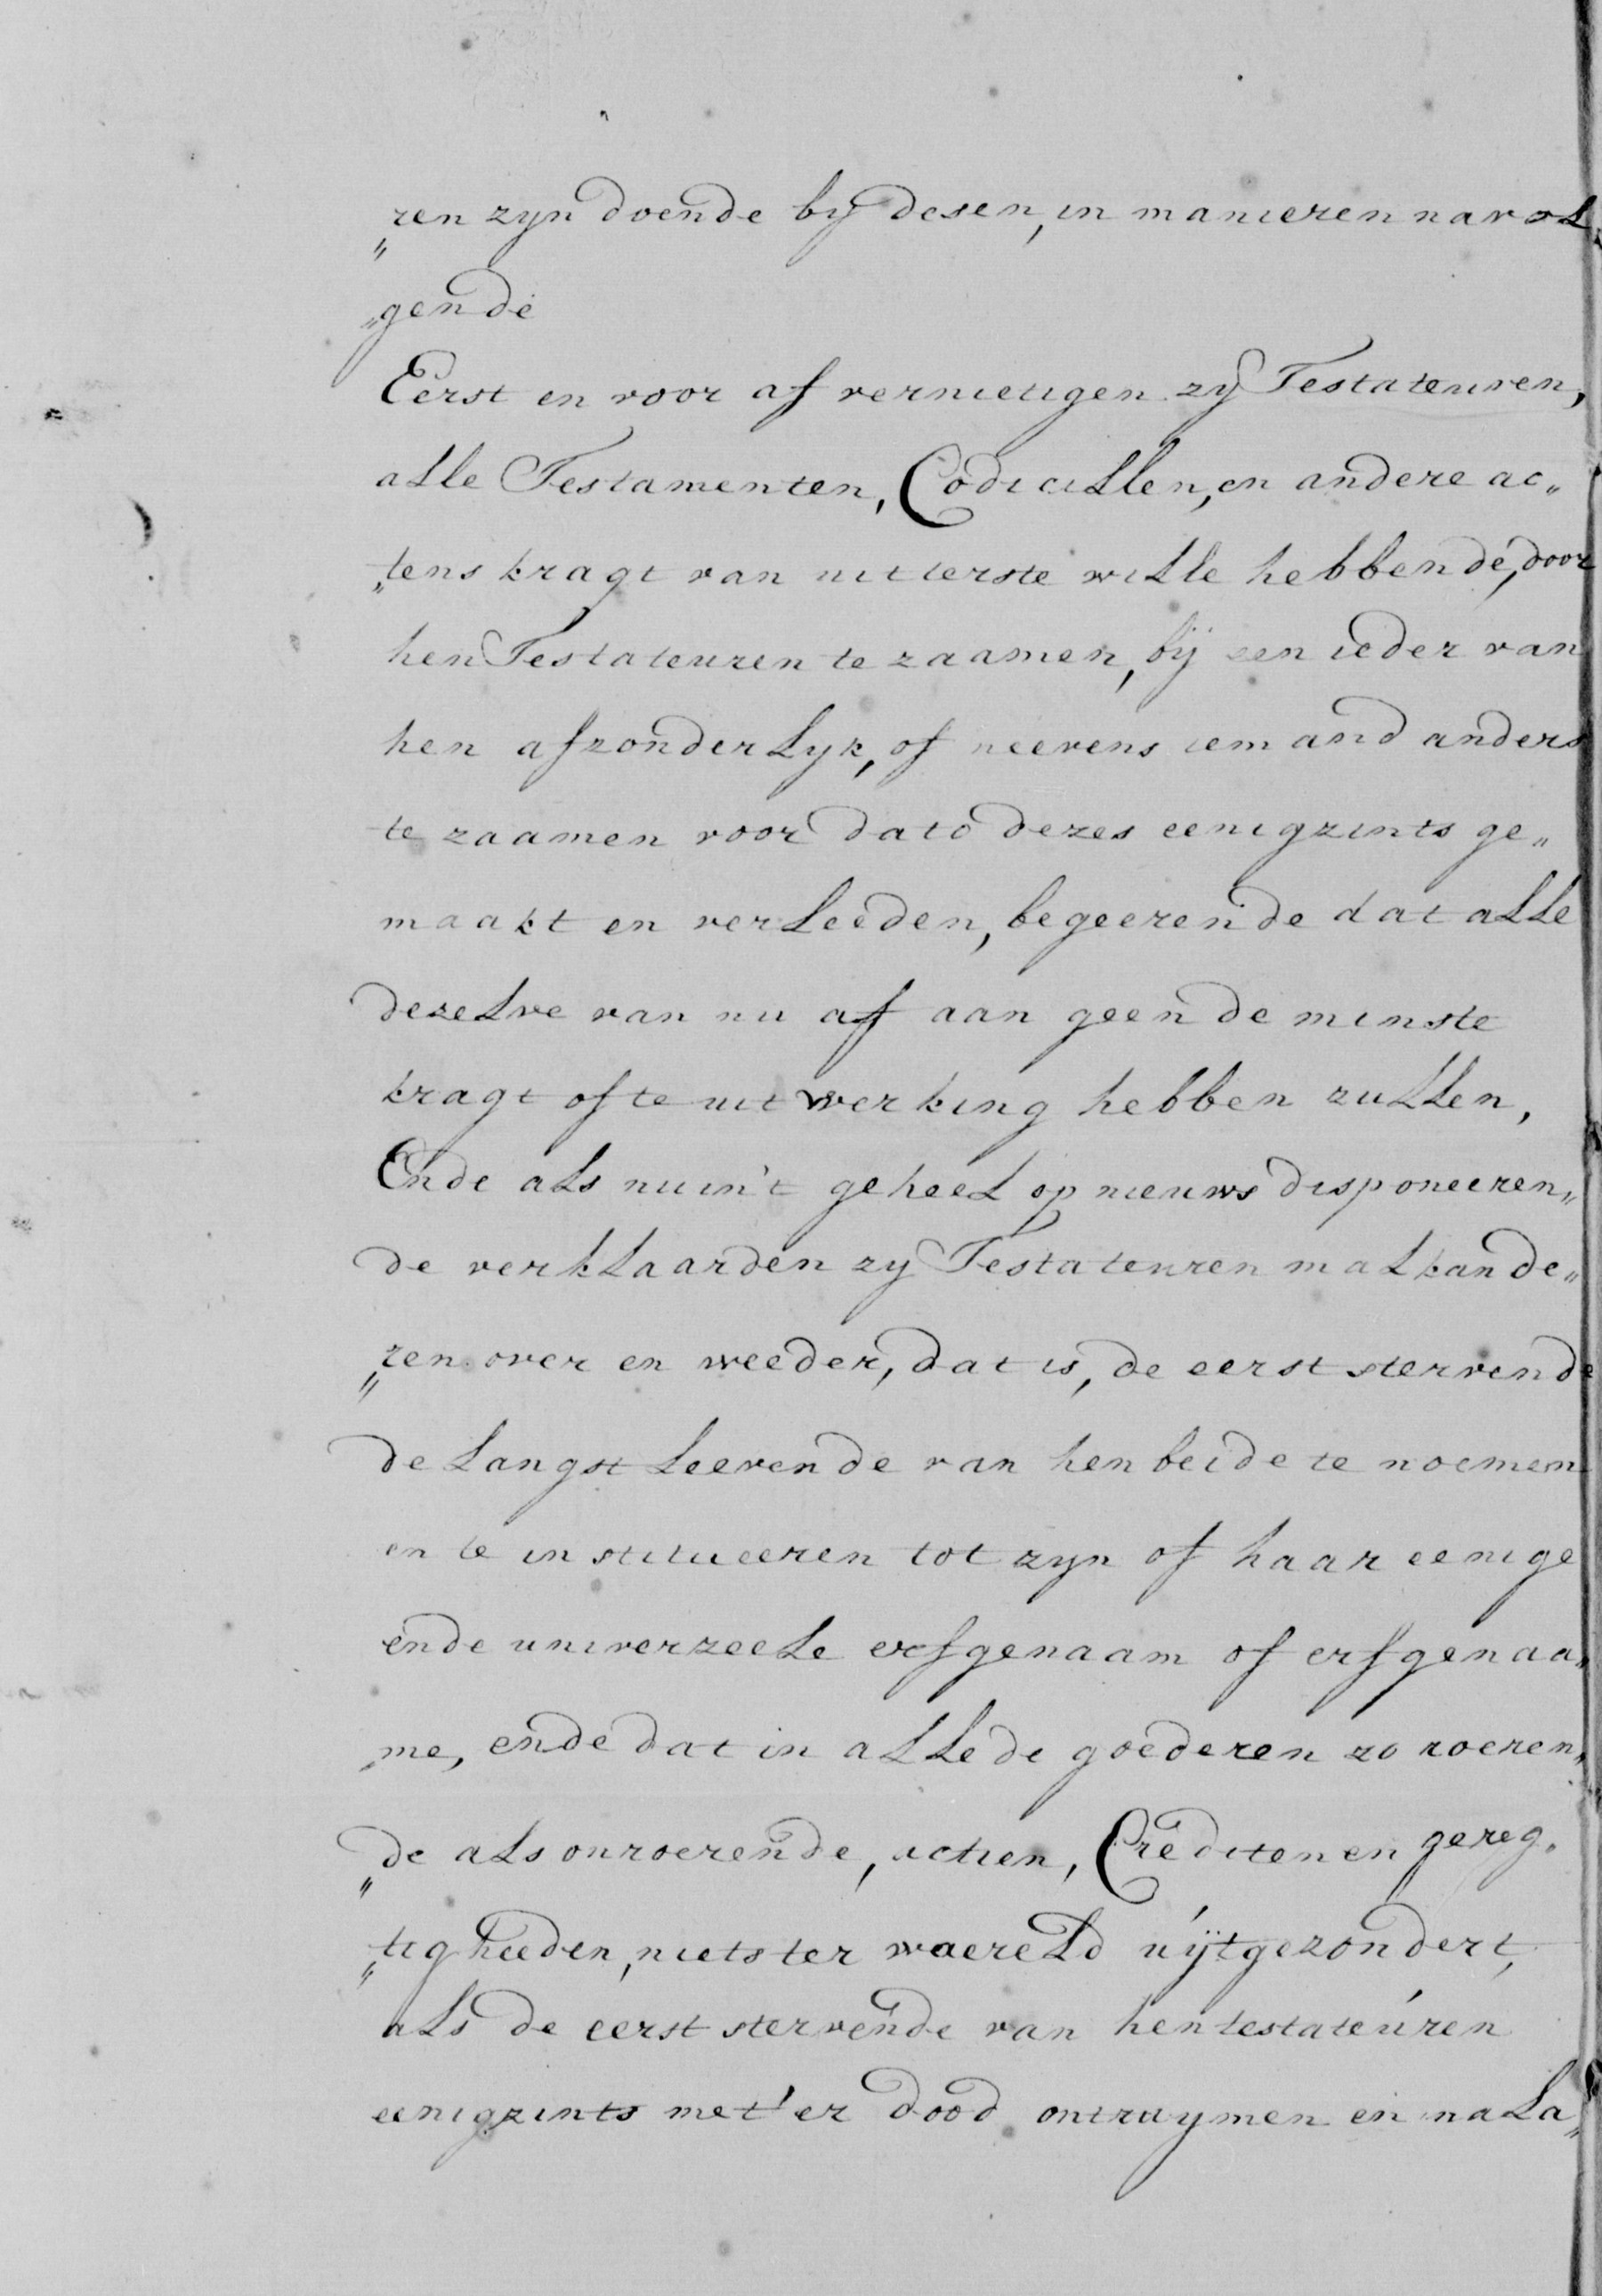 „ren zyn doende by desen, in manieren navol„
„gende
Eerst en voor af vernietigen zy Testateuren,
alle Testamenten, Codicillen, en andere ac„
„tens kragt van uitterste wille hebbende, door
hen Testateuren te zaamen, bij een ieder van
hen afzonderlyk, of neevens iemand anders
te zaamen voor dato dezes eenigzints ge„
maakt en verleeden, begeerende dat alle
dezelve van nu af aan geen de minste
kragt ofte uitwerking hebben zullen,
Ende als nu in't geheel op nieuws disponeeren„
de verklaarden zy Testateuren malkande„
„ren over en weeder, dat is, de eerst stervende
de langst leevende van hen beide te noemen
en te institueeren tot zyn of haar eenige
ende univerzeele erfgenaam of erfgenaa„
me, ende dat in alle de goederen zo roeren„
„de als onroerende, actien, Crediten en gereg„
„tigheeden, niets ter waereld uijtgezondert,
als de eerst stervende van hen testateuren
eenigzints met'er dood ontruymen en nala„